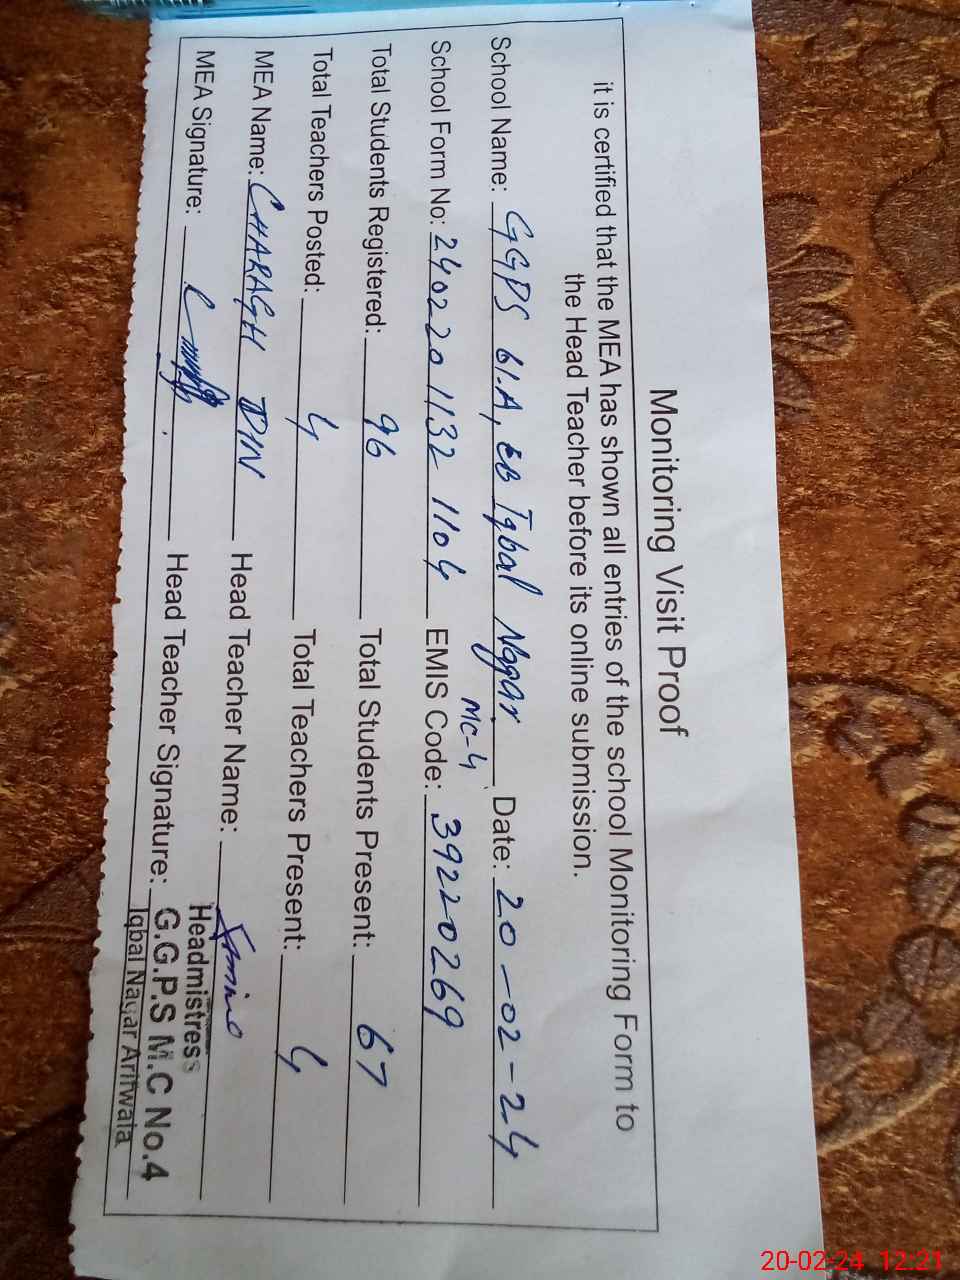 Monitoring Visit Proof
it is certified that the MEA has shown all entries of the school Monitoring Form to
the Head Teacher before its online submission.
School Name: GGPS 61-A, EB Iqbal Nagar Date: 20-02-24
MC-4
School Form No: 2402201132 1104 EMIS Code: 39220269
Total Students Registered: 96 Total Students Present: 67
Total Teachers Posted: 4 Total Teachers Present: 4
MEA Name: CHARAGH DIN Head Teacher Name:
MEA Signature: Head Teacher Signature:
Headmistress
G.G.P.S M.C No.4
Iqbal Nagar Arifwala
20-02-24 12:21